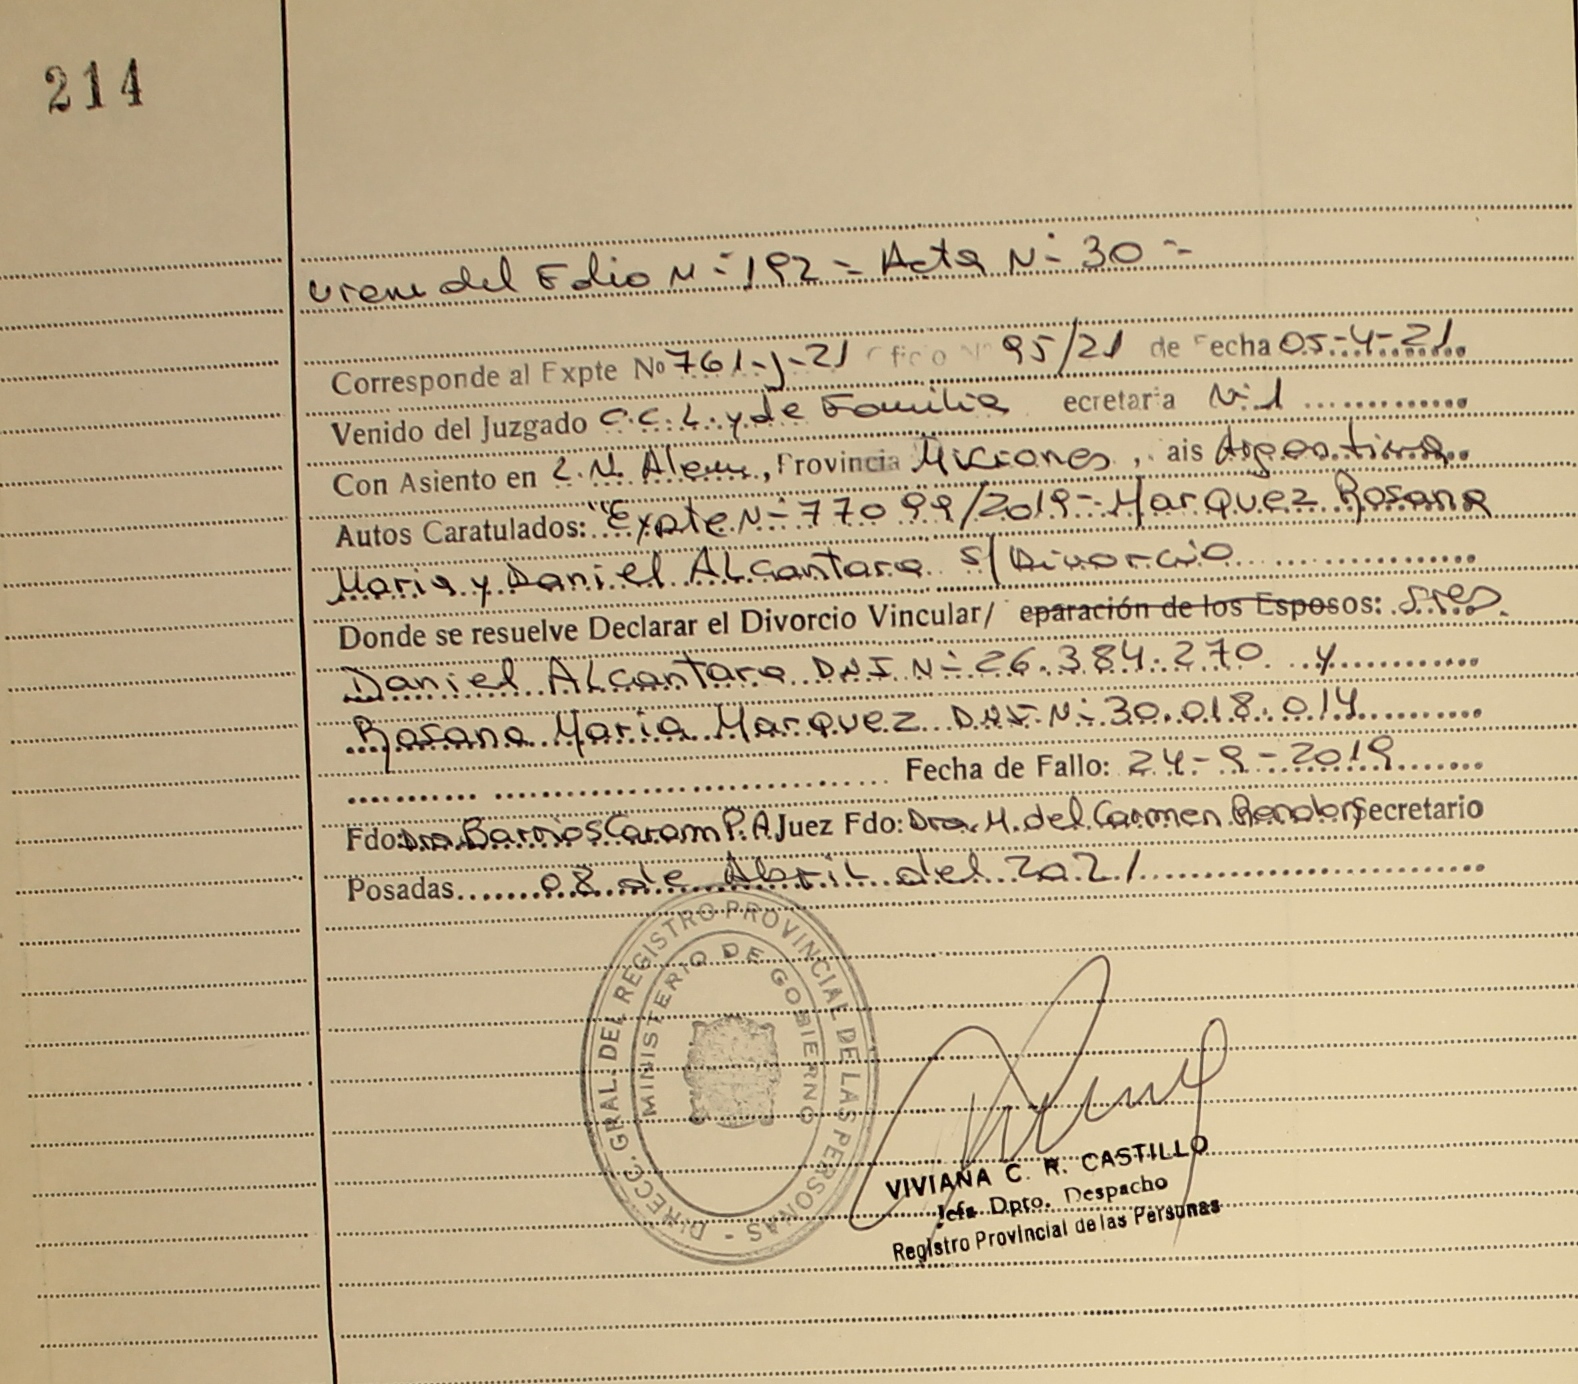 214
viene del Folio N- 192 - Acta N- 30 -
Corresponde al Expte Nº 761-J-21 Oficio Nº 95/21 de Fecha 05-4-21
Venido del Juzgado C.C.L. y de Familia ecretaria N-1
Con Asiento en L.N. Alem, Provincia Misiones, ais Argentina
Autos Caratulados: "Expte N- 77099/2019- Marquez Rosana
Maria y Daniel ALcantara s/ Divorcio
Donde se resuelve Declarar el Divorcio Vincular/ eparación de los Esposos: Sres.
Daniel ALcantara D.N.I. N- 26.384.270 y
Rosana Maria Marquez D.N.I. N- 30.018.014
Fecha de Fallo: 24-9-2019
Fdo: Dra. Barrios Caram P. A Juez Fdo: Dra. M. del Carmen Secretario
Posadas 08 de Abril del 2021
DIRECC. GRAL. DEL REGISTRO PROVINCIAL DE LAS PERSONAS -
MINISTERIO DE GOBIERNO
VIVIANA C. R. CASTILLO
Jefa Dpto. Despacho
Registro Provincial de las Personas